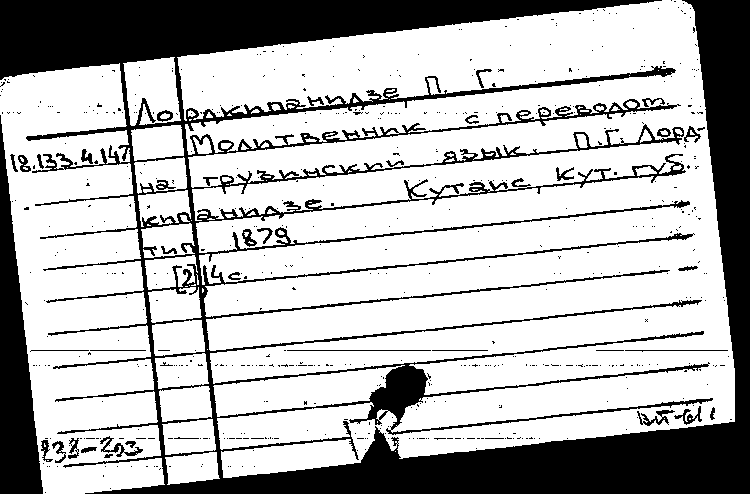 Лордкипанидзе, П. Г.
18.133.4.147 Молитвенник с переводом
на грузинский язык. П.Г. Лорд-
кипанидзе. Кутаис, Кут. губ.
тип., 1879.
[2], 14 с.